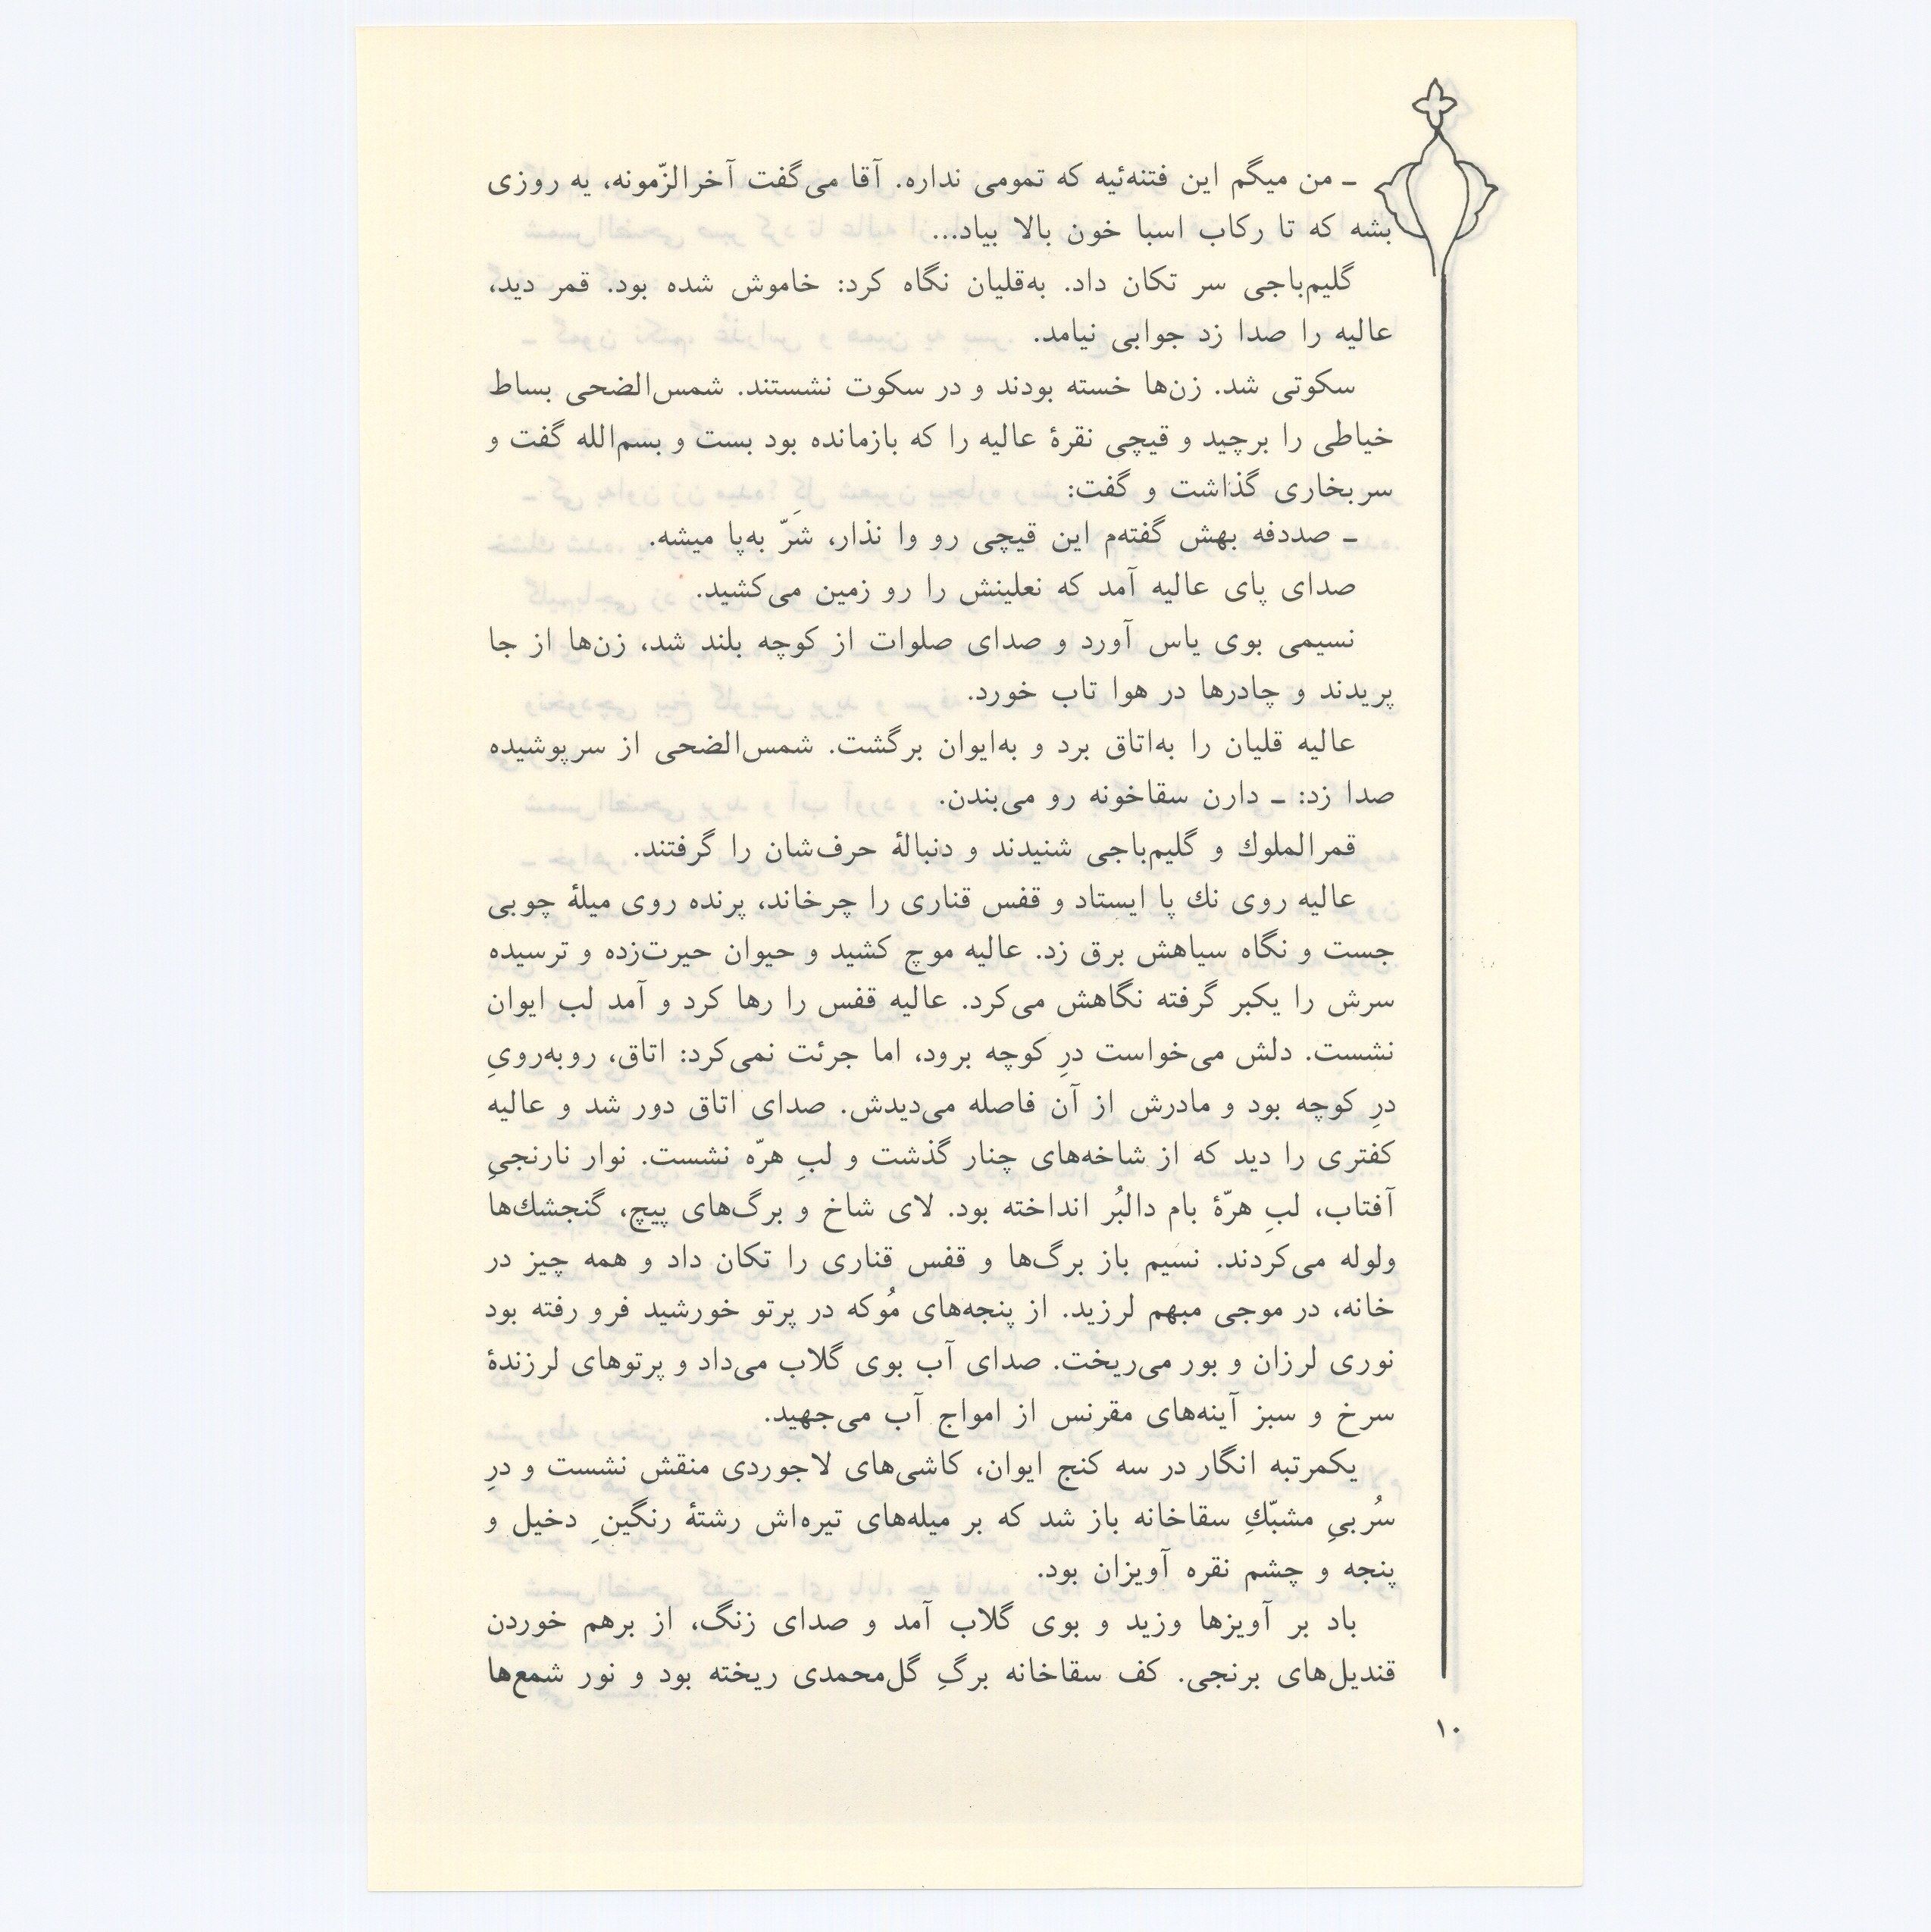 ـ من میگم این فتنه‌ئیه که تمومی نداره. آقا می‌گفت آخرالزّمونه، یه روزی
بشه که تا رکاب اسبا خون بالا بیاد...
گلیم‌باجی سر تکان داد. به‌قلیان نگاه کرد: خاموش شده بود. قمر دید،
عالیه را صدا زد جوابی نیامد.
سکوتی شد. زن‌ها خسته بودند و در سکوت نشستند. شمس‌الضحی بساط
خیاطی را برچید و قیچی نقرهٔ عالیه را که بازمانده بود بست و بسم‌الله گفت و
سربخاری گذاشت و گفت:
ـ صددفه بهش گفته‌م این قیچی رو وا نذار، شَرّ به‌پا میشه.
صدای پای عالیه آمد که نعلینش را رو زمین می‌کشید.
نسیمی بوی یاس آورد و صدای صلوات از کوچه بلند شد، زن‌ها از جا
پریدند و چادرها در هوا تاب خورد.
عالیه قلیان را به‌اتاق برد و به‌ایوان برگشت. شمس‌الضحی از سرپوشیده
صدا زد: ـ دارن سقاخونه رو می‌بندن.
قمرالملوك و گلیم‌باجی شنیدند و دنبالهٔ حرف‌شان را گرفتند.
عالیه روی نك پا ایستاد و قفس قناری را چرخاند، پرنده روی میلهٔ چوبی
جست و نگاه سیاهش برق زد. عالیه موچ کشید و حیوان حیرت‌زده و ترسیده
سرش را یکبر گرفته نگاهش می‌کرد. عالیه قفس را رها کرد و آمد لب ایوان
نشست. دلش می‌خواست درِ کوچه برود، اما جرئت نمی‌کرد: اتاق، روبه‌رویِ
درِ کوچه بود و مادرش از آن فاصله می‌دیدش. صدای اتاق دور شد و عالیه
کفتری را دید که از شاخه‌های چنار گذشت و لبِ هرّه نشست. نوار نارنجیِ
آفتاب، لبِ هرّهٔ بام دالبُر انداخته بود. لای شاخ و برگ‌های پیچ، گنجشك‌ها
ولوله می‌کردند. نسیم باز برگ‌ها و قفس قناری را تکان داد و همه چیز در
خانه، در موجی مبهم لرزید. از پنجه‌های مُوکه در پرتو خورشید فرو رفته بود
نوری لرزان و بور می‌ریخت. صدای آب بوی گلاب می‌داد و پرتوهای لرزندهٔ
سرخ و سبز آینه‌های مقرنس از امواج آب می‌جهید.
یکمرتبه انگار در سه کنج ایوان، کاشی‌های لاجوردی منقش نشست و درِ
سُربیِ مشبّكِ سقاخانه باز شد که بر میله‌های تیره‌اش رشتهٔ رنگینِ دخیل و
پنجه و چشم نقره آویزان بود.
باد بر آویزها وزید و بوی گلاب آمد و صدای زنگ، از برهم خوردن
قندیل‌های برنجی. کف سقاخانه برگِ گل‌محمدی ریخته بود و نور شمع‌ها
۱۰